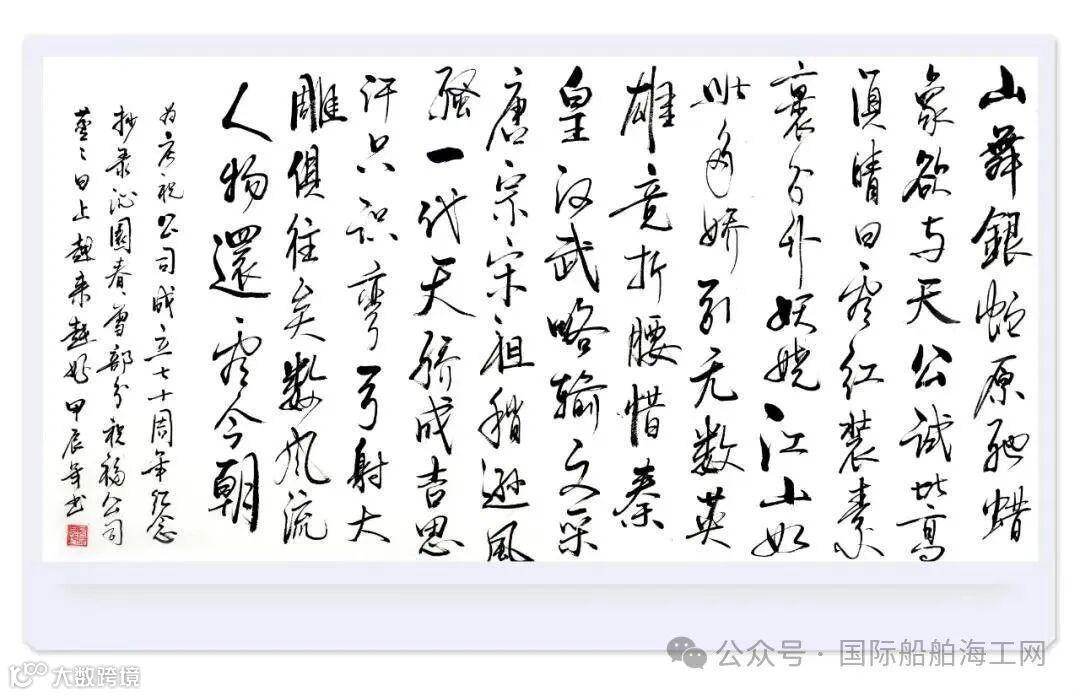 山舞銀蛇原驰蜡
象欲与天公试比高
须晴日看红装素
裹分外妖娆江山如
此多娇引无数英
雄竞折腰惜秦
皇汉武略输文采
唐宗宋祖稍逊风
骚一代天骄成吉思
汗只识弯弓射大
雕俱往矣数风流
人物還看今朝
为庆祝公司成立七十周年纪念
抄录沁園春·雪部分祝福公司
蒸々日上越来越好甲辰年书
公众号 · 国际船舶海工网
大数跨境